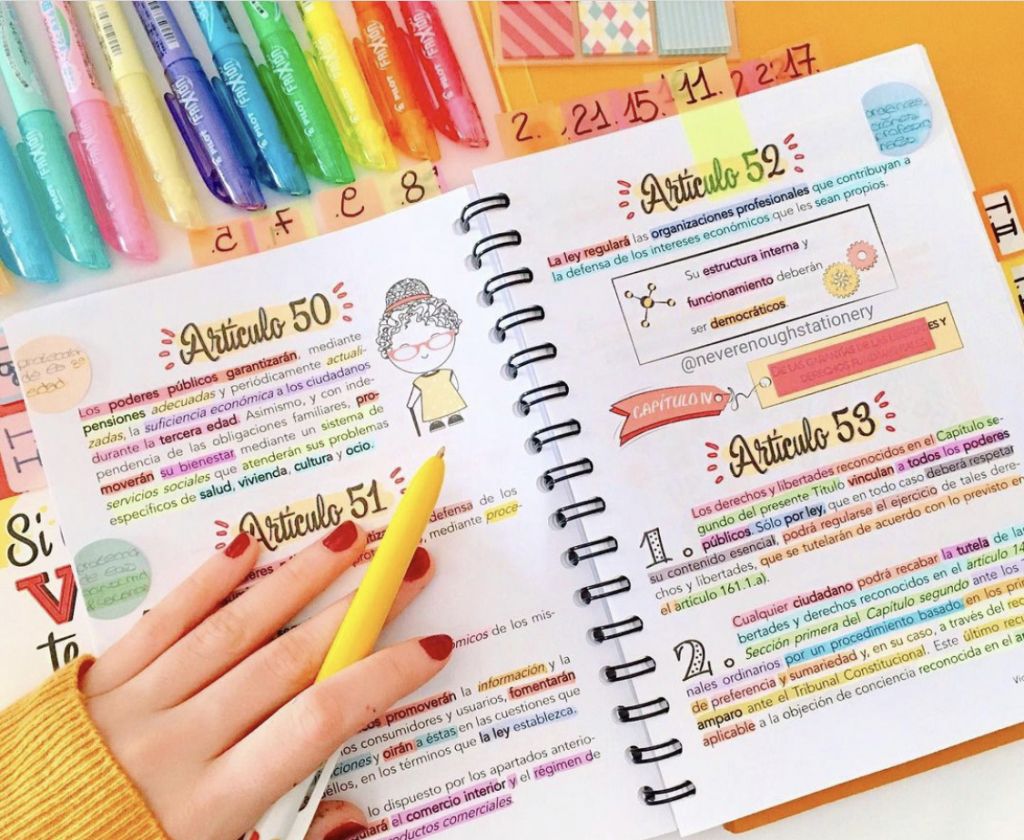 FRIXION
PILOT
FRIXION
PILOT
FRIXION
PILOT
FRIXION
PILOT
FRIXION
2.
21.
15.
11.
2
2.
17.
8
T.II
Artículo 50
Los poderes públicos garantizarán, mediante
pensiones adecuadas y periódicamente actuali-
zadas, la suficiencia económica a los ciudadanos
durante la tercera edad. Asimismo, y con inde-
pendencia de las obligaciones familiares, pro-
moverán su bienestar mediante un sistema de
servicios sociales que atenderán sus problemas
específicos de salud, vivienda, cultura y ocio.
Artículo 51
defensa de los
, mediante proce-
ómicos de los mis-
promoverán la información y la
los consumidores y usuarios, fomentarán
y oirán a éstas en las cuestiones que
en los términos que la ley establezca.
lo dispuesto por los apartados anterio-
el comercio interior y el régimen de
productos comerciales.
Si
te
Artículo 52
La ley regulará las organizaciones profesionales que contribuyan a
la defensa de los intereses económicos que les sean propios.
Su estructura interna y
funcionamiento deberán
ser democráticos.
@neverenoughstationery
CAPÍTULO IV
DE LAS GARANTÍAS DE LAS LIBERTADES Y
DERECHOS FUNDAMENTALES
Artículo 53
1.
Los derechos y libertades reconocidos en el Capítulo se-
gundo del presente Título vinculan a todos los poderes
públicos. Sólo por ley, que en todo caso deberá respetar
su contenido esencial, podrá regularse el ejercicio de tales dere-
chos y libertades, que se tutelarán de acuerdo con lo previsto en
el artículo 161.1.a).
2.
Cualquier ciudadano podrá recabar la tutela de las
bertades y derechos reconocidos en el artículo 14
Sección primera del Capítulo segundo ante los
nales ordinarios por un procedimiento basado en los prin
de preferencia y sumariedad y, en su caso, a través del recu
amparo ante el Tribunal Constitucional. Este último recu
aplicable a la objeción de conciencia reconocida en el a